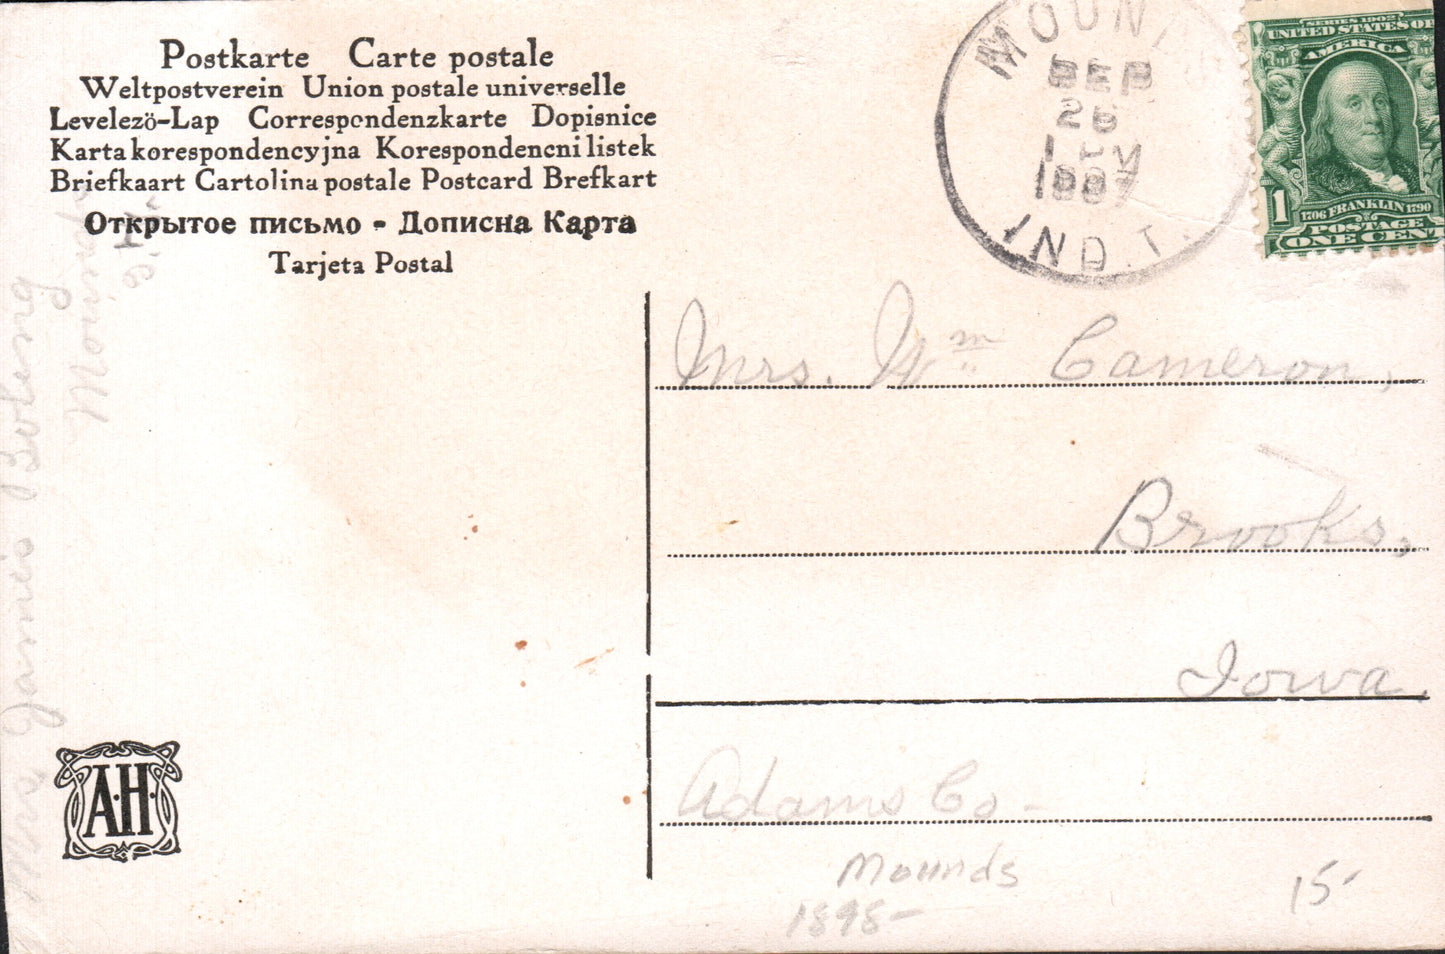 Postkarte Carte postale
Weltpostverein Union postale universelle
Levelezö-Lap Correspondenzkarte Dopisnice
Karta korespondencyjna Korespondencni listek
Briefkaart Cartolina postale Postcard Brefkart
Открытое письмо - Дописна Карта
Tarjeta Postal
MOUND
SEP
26
1907
IND. T.
SERIES 1902
UNITED STATES OF
AMERICA
1
1706 FRANKLIN 1790
POSTAGE
ONE CENT
Mrs. Wm Cameron,
Brooks,
Iowa.
Adams Co-
Mounds
1898-
15-
A·H·
Mrs James Boling